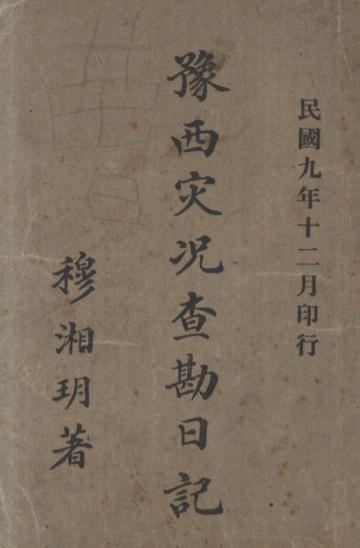 民國九年十二月印行
豫西灾况查勘日記
穆湘玥著